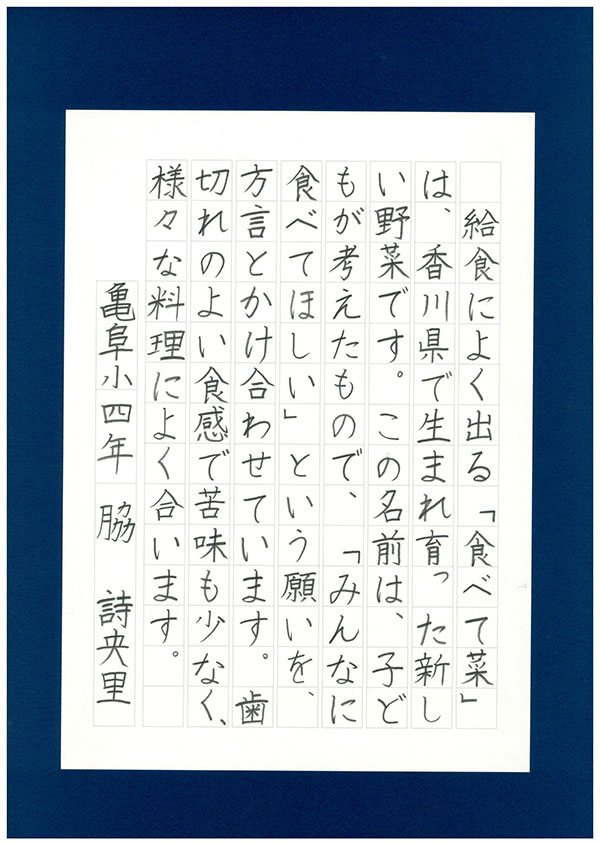 給食によく出る「食べて菜」
は、香川県で生まれ育った新し
い野菜です。この名前は、子ど
もが考えたもので、「みんなに
食べてほしい」という願いを、
方言とかけ合わせています。歯
切れのよい食感で苦味も少なく、
様々な料理によく合います。
亀阜小四年 脇 詩央里